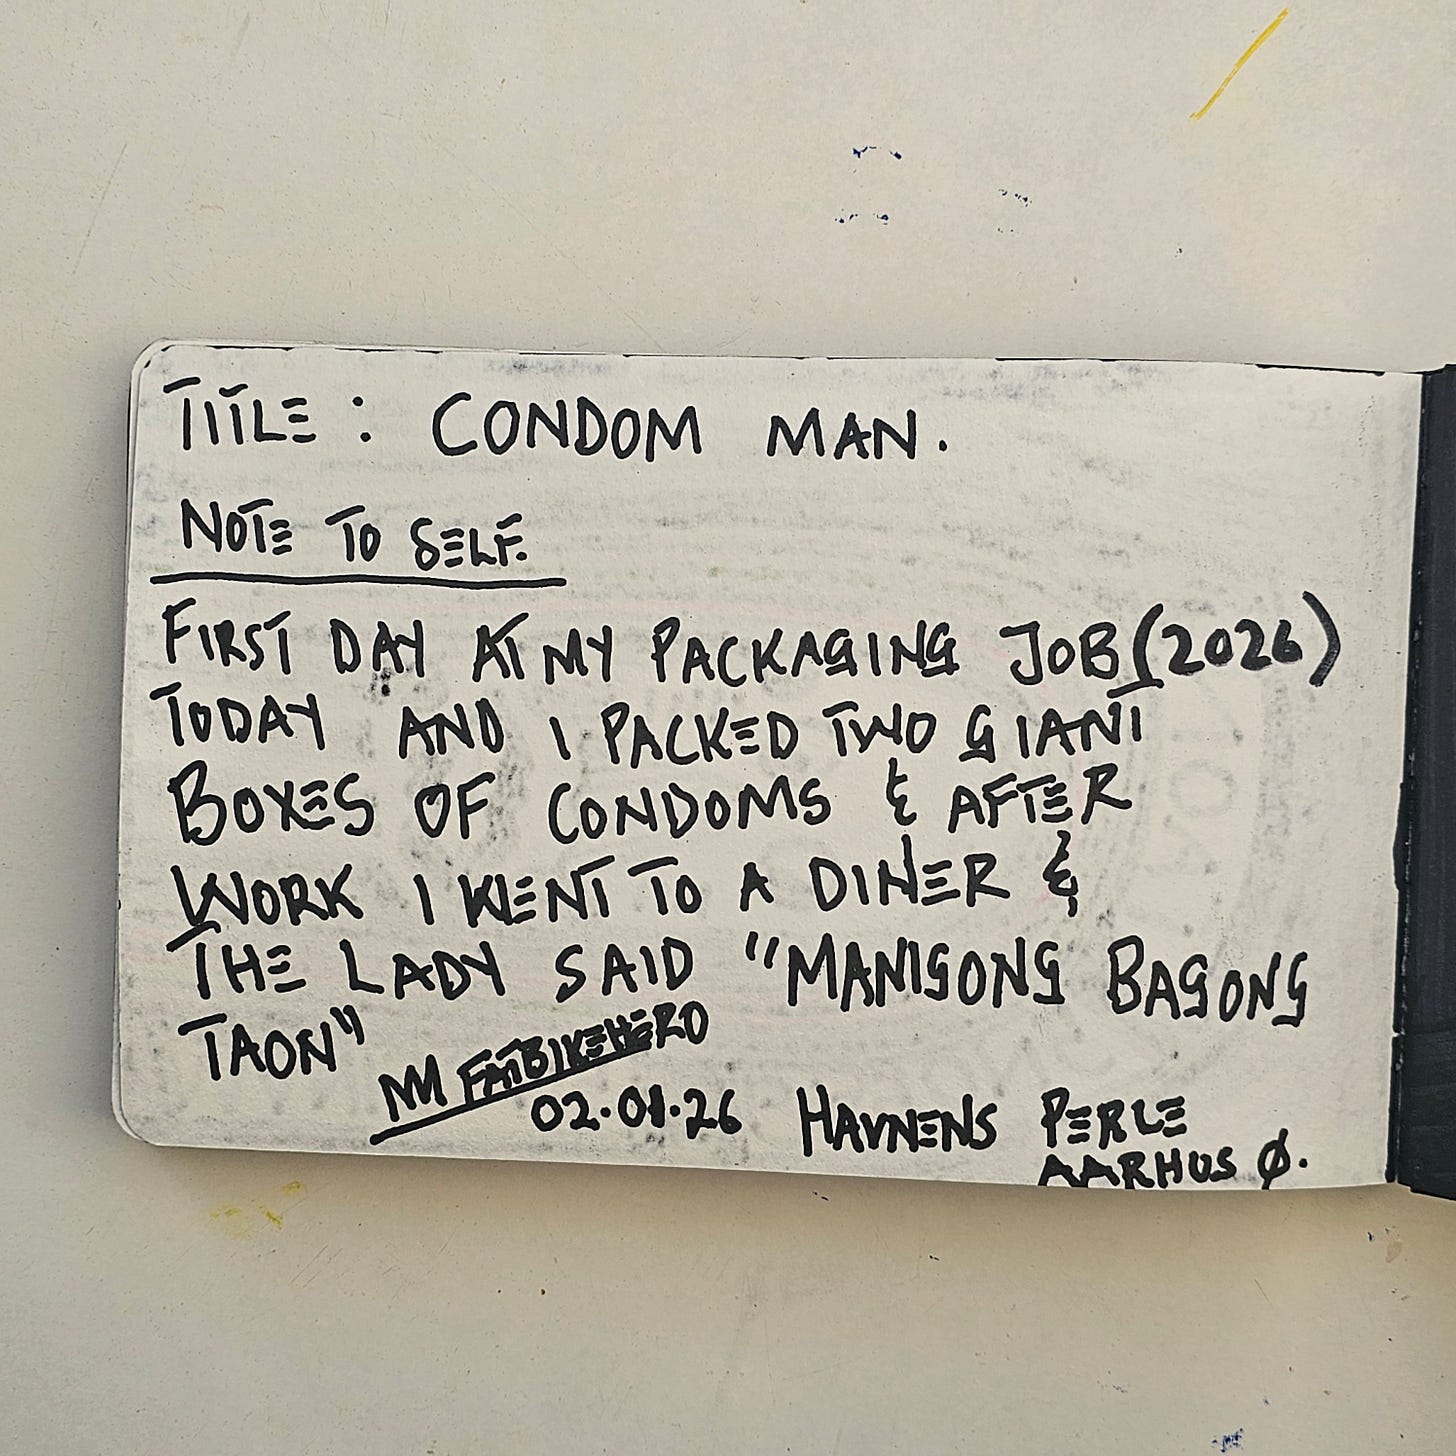 TITLE : CONDOM MAN.
NOTE TO SELF.
FIRST DAY AT MY PACKAGING JOB (2026)
TODAY AND I PACKED TWO GIANT
BOXES OF CONDOMS & AFTER
WORK I WENT TO A DINER &
THE LADY SAID "MANIGONG BAGONG
TAON"
NM FATBIKEHERO
02.01.26 HAVNENS PERLE
AARHUS Ø.